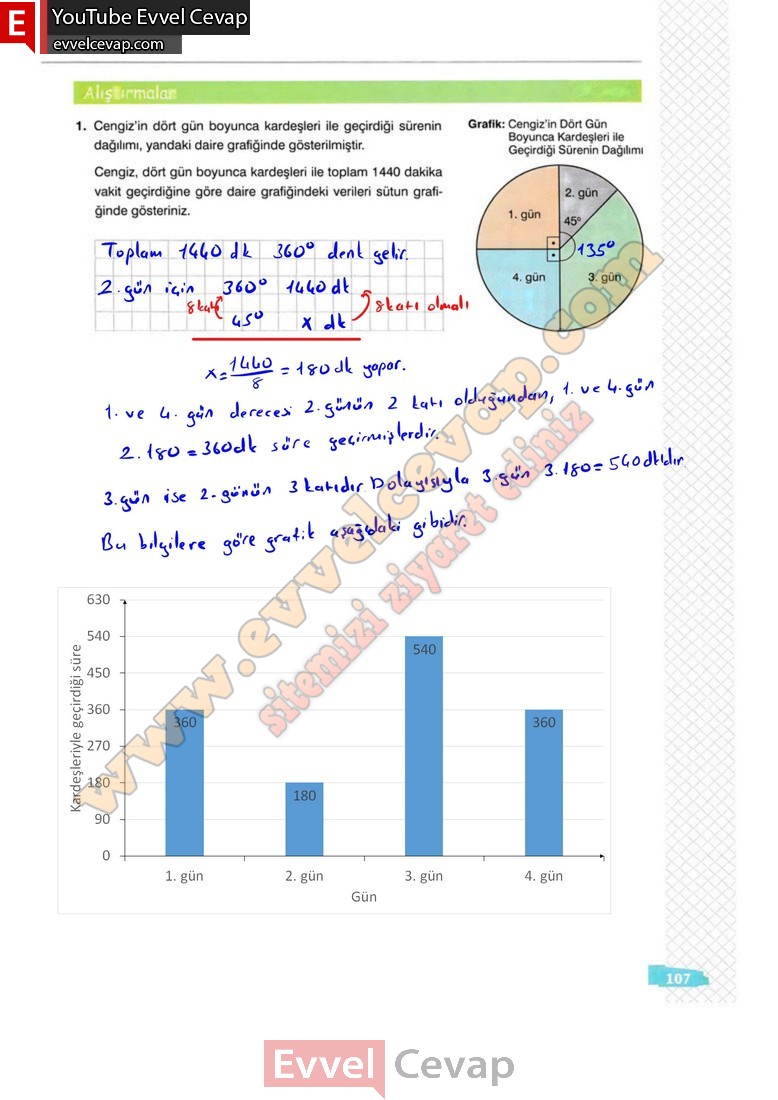 E
YouTube Evvel Cevap
evvelcevap.com
Alıştırmalar
1. Cengiz'in dört gün boyunca kardeşleri ile geçirdiği sürenin
dağılımı, yandaki daire grafiğinde gösterilmiştir.
Cengiz, dört gün boyunca kardeşleri ile toplam 1440 dakika
vakit geçirdiğine göre daire grafiğindeki verileri sütun grafi-
ğinde gösteriniz.
Grafik: Cengiz'in Dört Gün
Boyunca Kardeşleri ile
Geçirdiği Sürenin Dağılımı
2. gün
1. gün
45°
135°
4. gün
3. gün
Toplam 1440 dk 360° denk gelir.
2. gün için 360° 1440 dk
8katı 8katı olmalı
45° x dk
x = 1440/8 = 180 dk yapar.
1. ve 4. gün derecesi 2. günün 2 katı olduğundan, 1. ve 4. gün
2.180 = 360dk süre geçirmişlerdir.
3. gün ise 2. günün 3 katıdır. Dolayısıyla 3. gün 3.180 = 540 dkdır
Bu bilgilere göre grafik aşağıdaki gibidir.
www.evvelcevap.com
sitemizi ziyaret ediniz
Kardeşleriyle geçirdiği süre
630
540
450
360
270
180
90
0
360
180
540
360
1. gün
2. gün
3. gün
4. gün
Gün
107
Evvel Cevap